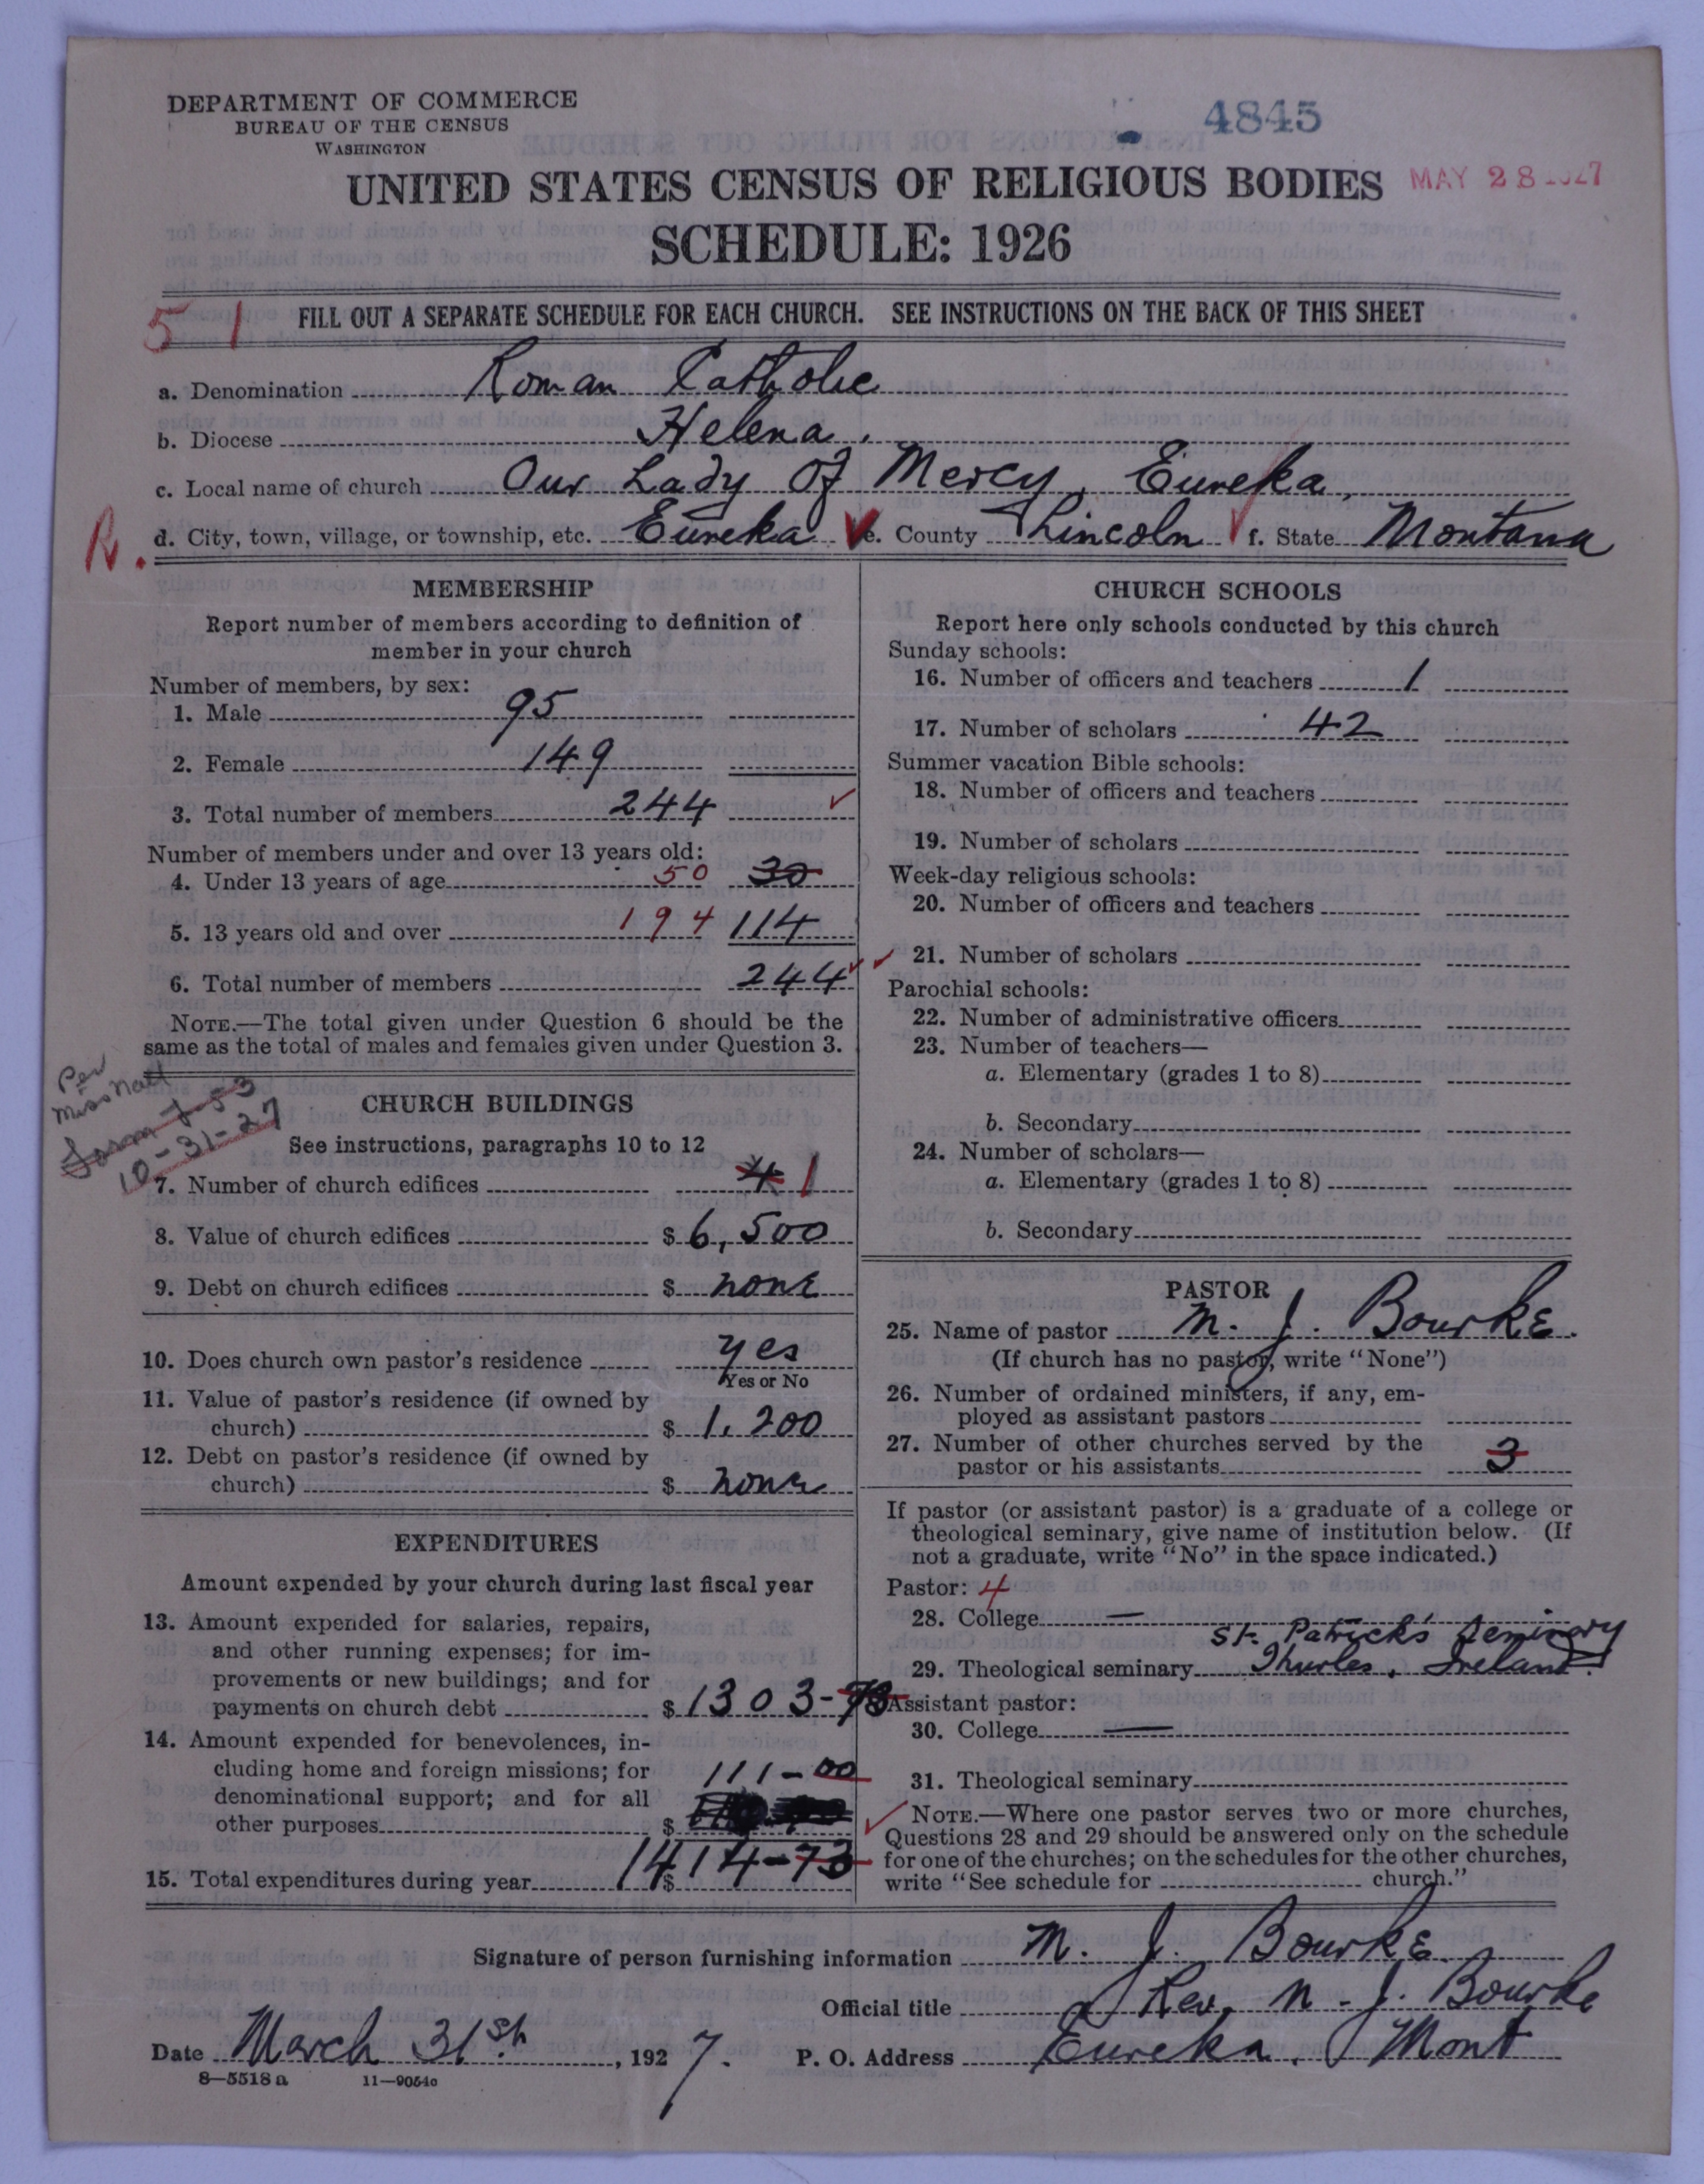 DEPARTMENT OF COMMERCE
BUREAU OF THE CENSUS
WASHINGTON
4845
UNITED STATES CENSUS OF RELIGIOUS BODIES
MAY 28 1927
SCHEDULE: 1926
5 1
FILL OUT A SEPARATE SCHEDULE FOR EACH CHURCH. SEE INSTRUCTIONS ON THE BACK OF THIS SHEET
a. Denomination Roman Catholic
b. Diocese Helena.
c. Local name of church Our Lady Of Mercy, Eureka,
R. d. City, town, village, or township, etc. Eureka e. County Lincoln f. State Montana
MEMBERSHIP
Report number of members according to definition of
member in your church
Number of members, by sex:
1. Male 95
2. Female 149
3. Total number of members 244
Number of members under and over 13 years old:
4. Under 13 years of age 50 30
5. 13 years old and over 194 114
6. Total number of members 244
NOTE.—The total given under Question 6 should be the
same as the total of males and females given under Question 3.
Per
Miss
10-31-27
CHURCH BUILDINGS
See instructions, paragraphs 10 to 12
7. Number of church edifices 4 1
8. Value of church edifices $ 6,500
9. Debt on church edifices $ none
10. Does church own pastor's residence yes
Yes or No
11. Value of pastor's residence (if owned by
church) $ 1,200
12. Debt on pastor's residence (if owned by
church) $ none
EXPENDITURES
Amount expended by your church during last fiscal year
13. Amount expended for salaries, repairs,
and other running expenses; for im-
provements or new buildings; and for
payments on church debt $ 1303-73
14. Amount expended for benevolences, in-
cluding home and foreign missions; for
111-00
denominational support; and for all
other purposes $
15. Total expenditures during year $ 1414-73
CHURCH SCHOOLS
Report here only schools conducted by this church
Sunday schools:
16. Number of officers and teachers 1
17. Number of scholars 42
Summer vacation Bible schools:
18. Number of officers and teachers
19. Number of scholars
Week-day religious schools:
20. Number of officers and teachers
21. Number of scholars
Parochial schools:
22. Number of administrative officers
23. Number of teachers—
a. Elementary (grades 1 to 8)
b. Secondary
24. Number of scholars—
a. Elementary (grades 1 to 8)
b. Secondary
PASTOR
25. Name of pastor M. J. Bourke.
(If church has no pastor, write "None")
26. Number of ordained ministers, if any, em-
ployed as assistant pastors
27. Number of other churches served by the
pastor or his assistants 3
If pastor (or assistant pastor) is a graduate of a college or
theological seminary, give name of institution below. (If
not a graduate, write "No" in the space indicated.)
Pastor: 4
28. College —
St. Patrick's Seminary
29. Theological seminary Thurles, Ireland.
Assistant pastor:
30. College —
31. Theological seminary
NOTE.—Where one pastor serves two or more churches,
Questions 28 and 29 should be answered only on the schedule
for one of the churches; on the schedules for the other churches,
write "See schedule for church."
Signature of person furnishing information M. J. Bourke
Official title Rev. M. J. Bourke
Date March 31st, 1927. P. O. Address Eureka, Mont
8—5518 a 11—9054c